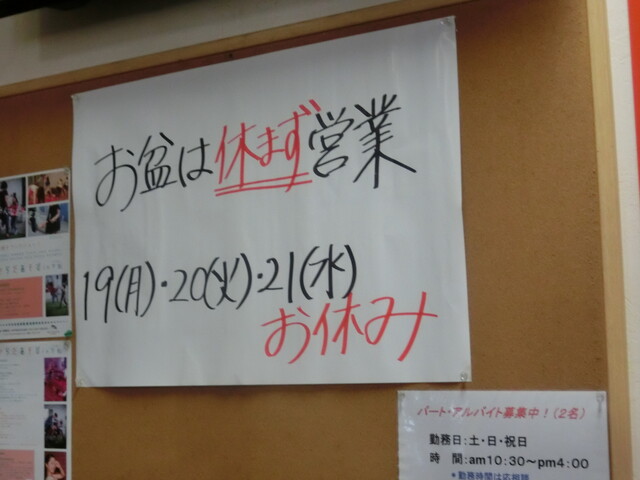 お盆は休まず営業
19(月)・20(火)・21(水)
お休み
パート・アルバイト募集中！(2名)
勤務日：土・日・祝日
時　間：am10:30～pm4:00
＊勤務時間は応相談